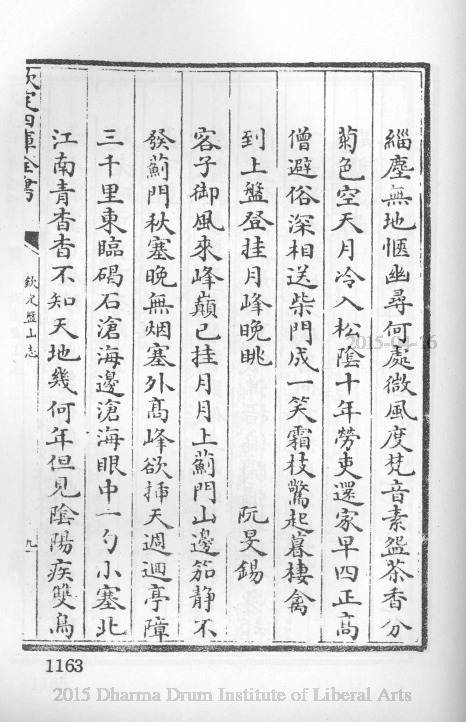 緇塵無地愜幽尋何處微風度梵音素盌茶香分
菊色空天月冷入松陰十年勞吏還家早四正高
僧避俗深相送柴門成一笑霜枝驚起暮棲禽
到上盤登挂月峰晚眺 阮旻錫
客子御風來峰巔已挂月月上薊門山邊笳静不
發薊門秋塞晚無烟塞外高峰欲揷天週迴亭障
三千里東臨碣石滄海邊滄海眼中一勺小塞北
江南青杳杳不知天地幾何年但見陰陽疾雙鳥
欽定四庫全書
欽定盤山志
九
2015-04-16
1163
2015 Dharma Drum Institute of Liberal Arts